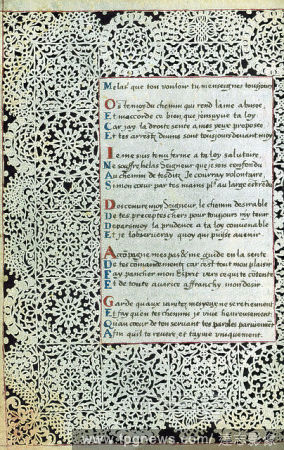 Melas que ton vouloir tu m'enseignes tousjours
Oste moy du chemin qui rend lame abusee,
Et maccorde ce bien que jensuyve ta loy
Car jay la droite sente a mes yeux proposee
Et tes arrestz divins sont tousjours devant moy
Ie me suis tenu ferme a ta loy salutaire,
Ne souffre helas Seigneur que je sois
Au chemin de tes ditz Je courray volontaire,
Si mon coeur par tes mains est au large
Descouvre moy Seigneur, le chemin desirable
De tes preceptes chers pour tousjours my tenir
Depars moy la prudence a ta loy convenable
Et je lobserveray quoy qui puisse avenir
Accopagne mes pas & me guide en la sente
De tes comandementz car cest tout mon plaisir
Fay pancher mon Esprit vers ce qui te contente
Et de toute avarice affranchy mon desir
Garde qu'aux vanitez mes yeux ne se retiennent
Et fay quen tes chemins je vive heureusement
Quau coeur de ton servant tes paroles parviennent
Afin quil te revere et tayme uniquement.
www.fpgnews.com